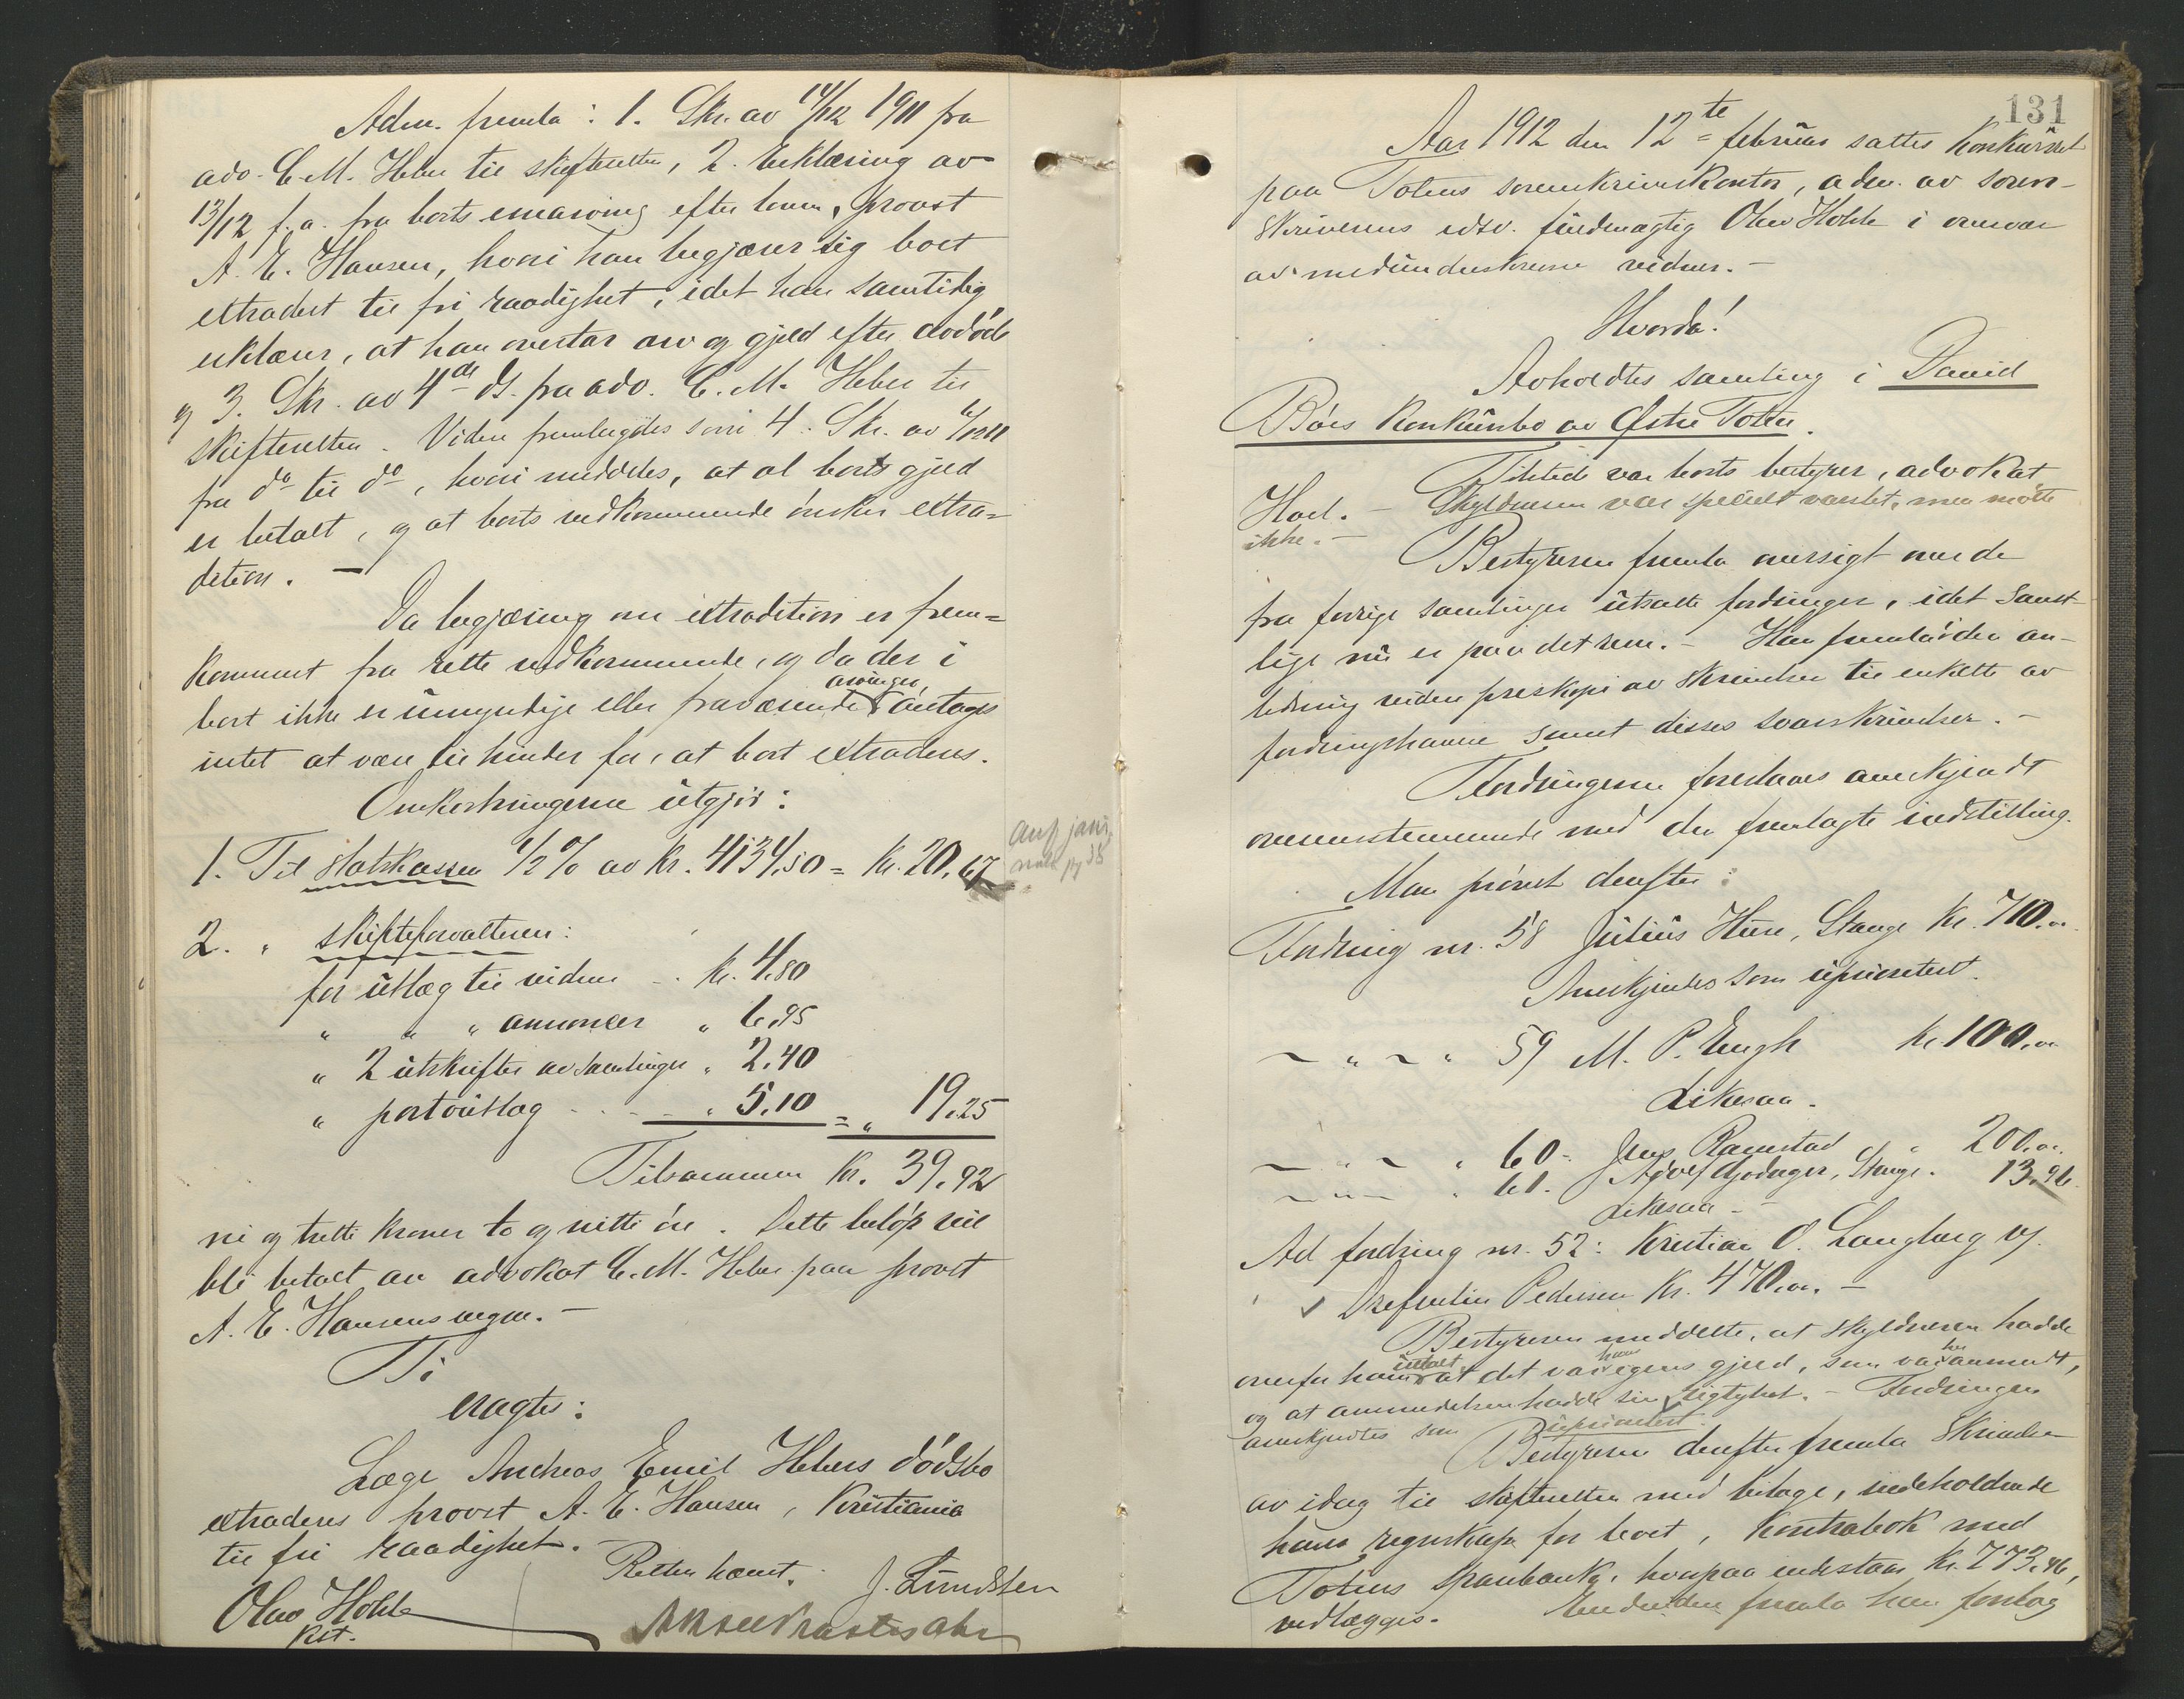 Adm. fremla: 1. Skr. av 14/12 1911 fra
adv. C. M. Heber til skifteretten, 2. Erklæring av
13/12 s. a. fra boets enearving efter loven, provst
A. E. Hansen, hvori han begjærer sig boet
extradert til fri raadighet, idet han samtidig
erklærer, at han overtar arv og gjeld efter avdøde
og 3. Skr. av 4de ds. fra adv. C. M. Heber til
skifteretten. Videre fremlagdes som 4. Skr. av
fra do til do, hvori meddeles, at al boets gjeld
er betalt, og at boets vedkommende ønsker extra=
dition. —
Da begjæring om extradition er frem=
kommet fra rette vedkommende, og da der i
boet ikke er umyndige eller fraværende arvinger, antages
intet at være til hinder for, at boet extraderes.
Omkostningerne utgjør:
1. Til Statskassen 1/2 % av kr. 4134,50 = kr. 20,67
2. " skifteforvalteren:
for utlæg til vidner - . kr. 4,80
" " " annoncer " 6,95
" 2 utskrifter av samlinger " 2,40
" portoutlæg - - - " 5,10 = " 19,25
Tilsammen kr. 39,92
ni og tretti kroner to og nitti øre. Dette beløp vil
bli betalt av advokat C. M. Heber paa provst
A. E. Hansens vegne. —
Ti
eragtes:
Læge Andreas Emil Hebers dødsbo
extraderes provst A. E. Hansen, Kristiania
til fri raadighet.
Retten hævet.
Olav Hohle
kst.
J. Lundsten
131
Aar 1912 den 12te februar sattes Konkursret
paa Totens sorenskriverkontor, adm. av soren-
skriverens edsv. fuldmægtig Olav Hohle i overvær
av medunderskrevne vidner. —
Hvorda!
Avholdtes samling i David
Bøes Konkursbo av Østre Toten.
Tilstede var boets bestyrer, advokat
Hoel. — Skyldneren var specielt varslet, men møtte
ikke. —
Bestyreren fremla oversigt over de
fra forrige samlinger utsatte fordringer, idet samt-
lige nu er paa det rene. — Han fremla i den an-
ledning videre preskopi av skrivelser til enkelte av
fordringshaverne samt disses svarskrivelser. —
Fordringerne foreslaaes anerkjendt
overensstemmende med den fremlagte indstilling.
Man prøvet derefter:
Fordring nr. 58 Julius Hure, Stange kr. 710.00
Anerkjendes som uprioritert.
— " — " 59 M. P. Engh kr. 100.00
Likesaa.
— " — " 60 - Jens Ramstad " 200.00.
— " — " 61. Adolf Gjødnger, Stange. 13,96.
Likesaa -
Ad fordring nr. 52: Kristian O. Langberg v/
Pedersen kr. 470.00. —
Bestyreren meddelte, at skyldneren hadde
overfor ham uttalt, at det var hans egens gjeld, som var her anmeldt,
og at anmeldelsen hadde sin rigtighet. — Fordringen
anerkjendtes som uprioritert.
Bestyreren derefter fremla skrivelse
av idag til skifteretten med bilage, indeholdende
hans regnskap for boet, kontrabok med
Totens Sparebank, hvorpaa indestaar kr. 773.46,
vedlægges. Endvidere fremla han forslag